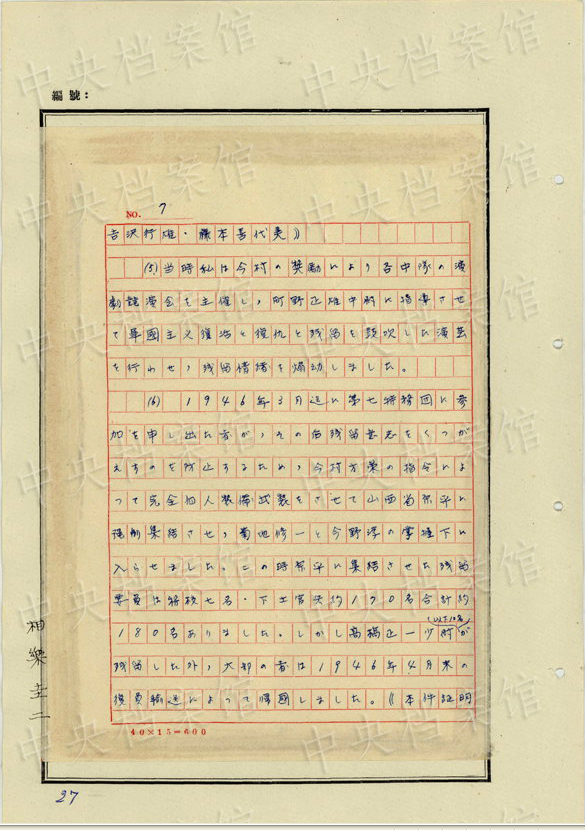 編號：
NO. 7
吉沢行雄・藤本喜代美》
(5)当時私は今村の奨励により各中隊の演
劇競演会を主催し，町野正雄中尉に指導させ
て軍國主義復活と復仇と残留を鼓吹した演芸
を行わせ，残留情緒を煽动しました。
(6) 1946年3月迄に第七特務团に参
加を申し出た者が，その后残留意志をくつが
えすのを防止するため，今村方策の指令によ
って完全個人装備武装をさせて山西省原平に
強制集結させ，菊地修一と今野淳の掌握下に
入らせました。この時原平に集結させた残留
要員は将校七名・下士官兵約170名合計約
180名ありました。しかし高橋正一少尉(以下10名)が
残留した外，大部の者は1946年4月末の
復員輸送によって帰國しました。《本件証明
40×15=600
相楽圭二
27
中央档案馆